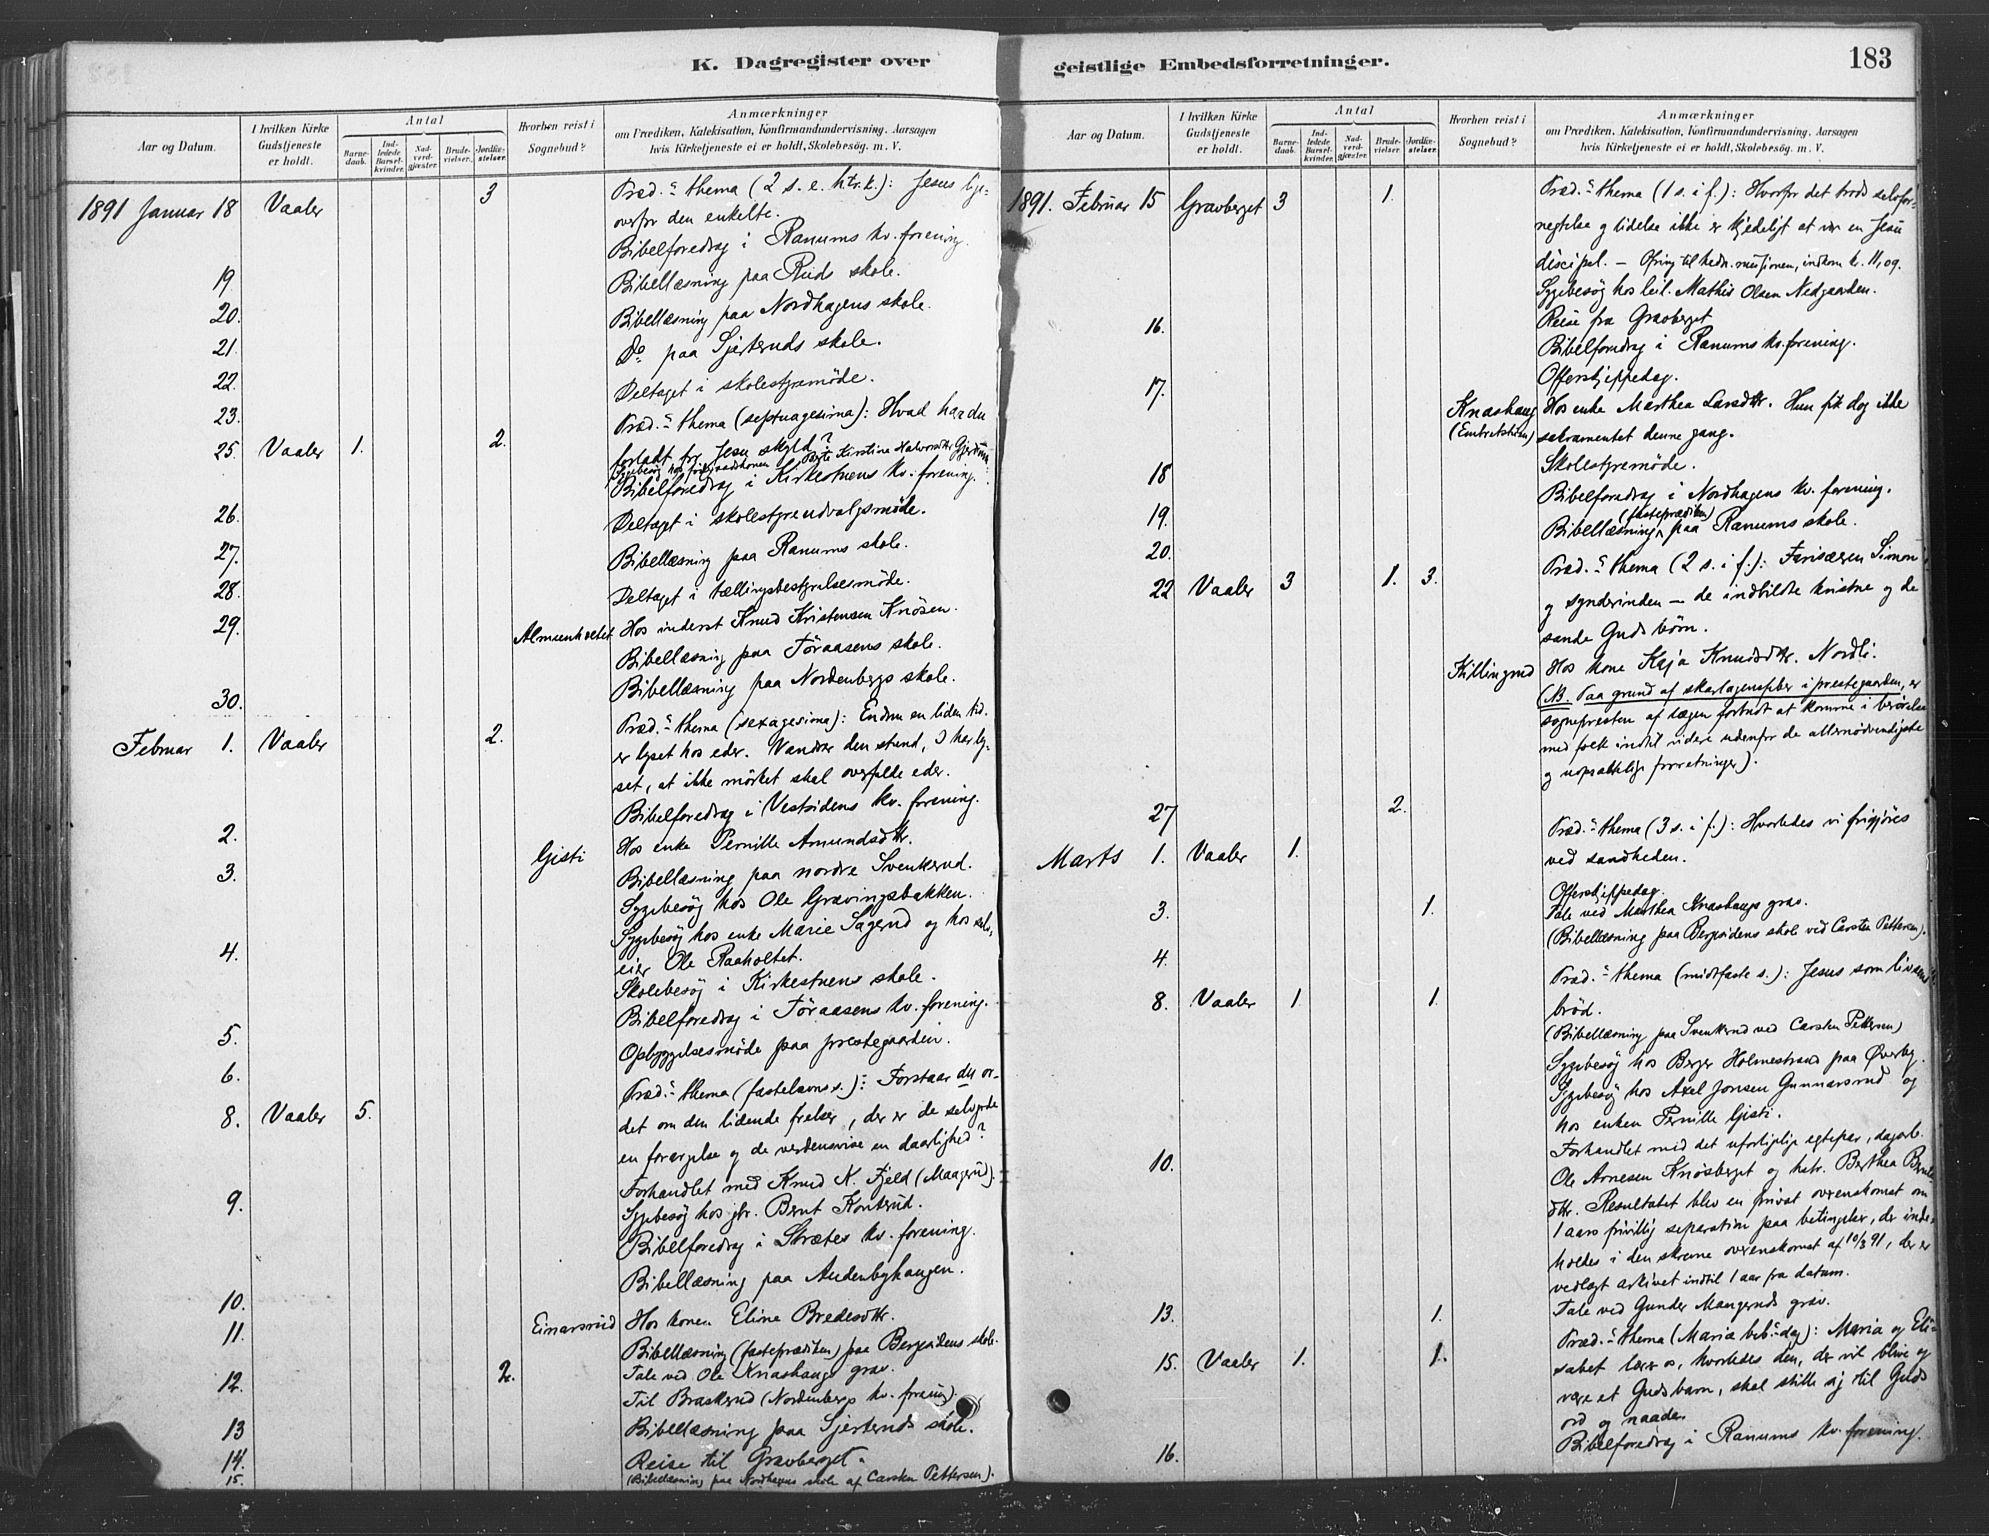 K. Dagregister over
Aar og Datum.
I hvilken Kirke Gudstjeneste er holdt.
Antal
Barnedaab.
Indledede Barselkvinder.
Nadverdgjæster.
Brudevielser.
Jordfæstelser.
Hvorhen reist i Sognebud?
Anmærkninger
om Prædiken, Katekisation, Konfirmandundervisning. Aarsagen
hvis Kirketjeneste ei er holdt, Skolebesøg. m. V.
1891 Januar 18 Vaaler 3 Præd.s thema (2 s. e. htr.k.): Jesus lige-
overfor den enkelte.
Bibelforedrag i Ranums kv. forening.
19 Bibellæsning paa Ruds skole.
20. Bibellæsning paa Nordhagens skole.
21. Do paa Sjerteruds skole.
22. Deltaget i skolestyremöde.
23.
25. Vaaler 1. 2. Præd.s thema (septuagesima): Hvad har du
forladt for Jesu skyld?
Bibelforedrag i Kirkestuens kv. forening.
26. Deltaget i skolestyreudvalgsmöde.
27. Bibellæsning paa Ranums skole.
28. Deltaget i tællingsbestyrelsesmöde.
29. Almuenhvetet Hos inderst Knud Kristensen Knösen.
Bibellæsning paa Föraasens skole.
30. Bibellæsning paa Nordenbergs skole.
Februar 1. Vaaler 2. Præd.s thema (sexagesima): Endnu en liden tid
er lyset hos eder. Vandrer den stund, I har ly-
set, at ikke mörket skal overfalde eder.
Bibelforedrag i Vestsidens kv. forening.
2. Gisti Hos enke Pernille Amundsdtr.
3. Bibellæsning paa nordre Svenkerud.
Sygebesög hos Ole Grævingsbakken.
Sygebesög hos enke Marie Sagerud og hos selv-
4. eier Ole Raaholtet.
Skolebesög i Kirkestuens skole.
Bibelforedrag i Föraasens kv. forening.
5. Opbyggelsesmöde paa prestegaarden.
6.
8. Vaaler 5. Præd.s thema (fastelavns s.): Forstaar du or-
det om den lidende frelser, der er de selvgode
en forargelse og de verdensvise en daarlighed?
Forhandlet med Knud K. Fjeld (Maagerud).
9. Sygebesög hos gbr. Bernt Konterud.
Bibelforedrag i Strætes kv. forening.
Bibellæsning paa Audenbyhaugen.
10.
11. Einarsrud Hos konen Eline Bredesdtr.
Bibellæsning (fasteprædiken) paa Bergsidens skole.
12. 2. Tale ved Ole Knashaugs grav.
Til Braskerud (Nordenbergs kv. forening).
13 Bibellæsning paa Sjerteruds skole.
14. Reise til Gravberget.
15. (Bibellæsning paa Nordhagens skole af Carsten Pettersen).
geistlige Embedsforretninger.
183
Aar og Datum.
I hvilken Kirke Gudstjeneste er holdt.
Antal
Barnedaab.
Indledede Barselkvinder.
Nadverdgjæster.
Brudevielser.
Jordfæstelser.
Hvorhen reist i Sognebud?
Anmærkninger
om Prædiken, Katekisation, Konfirmandundervisning. Aarsagen
hvis Kirketjeneste ei er holdt, Skolebesøg. m. V.
1891. Februar 15 Gravberget 3 1. Præd.s thema (1 s. i f.): Hvorfor det trods selvfor-
negtelse og lidelse ikke er kjedeligt at være en Jesu
discipel. — Ofring til hedn. missionen, indkom kr. 11,09.
Sygebesög hos leil. Mathis Olsen Nedgaarden.
16. Reise fra Gravberget
Bibelforedrag i Ranums kv. forening.
17. Offerskjeppedag.
Knashaug Hos enke Marthea Larsdtr. Hun fik dog ikke
(Embretstuen) sakramentet denne gang.
18 Skolestyremöde.
Bibelforedrag i Nordhagens kv. forening.
19. (fasteprædiken)
Bibellæsning paa Ranums skole.
20.
22 Vaaler 3 1. 3. Præd.s thema (2 s. i f.): Farisæeren Simon
og synderinden — de indbildte kristne og de
sande Guds börn.
Killingrud Hos kone Kaja Knudsdtr. Nordli.
(NB. Paa grund af skarlagensfeber i prestegaarden, er
sognepresten af lægen forbudt at komme i berörelse
med folk indtil videre udenfor de allernödvendigste
og uopsættelige forretninger).
27 2.
Marts 1. Vaaler 1. Præd.s thema (3 s. i f.): Hvorledes vi frigjöres
ved sandheden.
Offerskjeppedag.
3. 1. Tale ved Marthea Knashaugs grav.
(Bibellæsning paa Bergsidens skole ved Carsten Pettersen).
4.
8. Vaaler 1. 1. Præd.s thema (midtfaste s.): Jesus som livsens
bröd.
(Bibellæsning paa Svenkerud ved Carsten Pettersen)
Sygebesög hos Berger Holmestrand paa Øverby.
Sygebesög hos Axel Jonsen Gunnarsrud og
hos enken Pernille Gisti.
10. Forhandlet med det uforligelige egtepar, dagarb.
Ole Arnesen Knösberget og hstr. Berthea Bernts-
dtr. Resultatet blev en privat overenskomst om
1 aars frivillig separation paa betingelser, der inde-
holdes i den skrevne overenskomst af 10/3 91, der er
vedlagt arkivet indtil 1 aar fra datum.
13. 1. Tale ved Gunder Maugeruds grav.
15. Vaaler 1. 1. Præd.s thema (Mariæ beb.s dag): Maria og Eli-
sabet lærer os, hvorledes den, der vil blive og
være et Guds barn, skal stille sig til Guds
ord og naade.
16. Bibelforedrag i Ranums kv. forening.